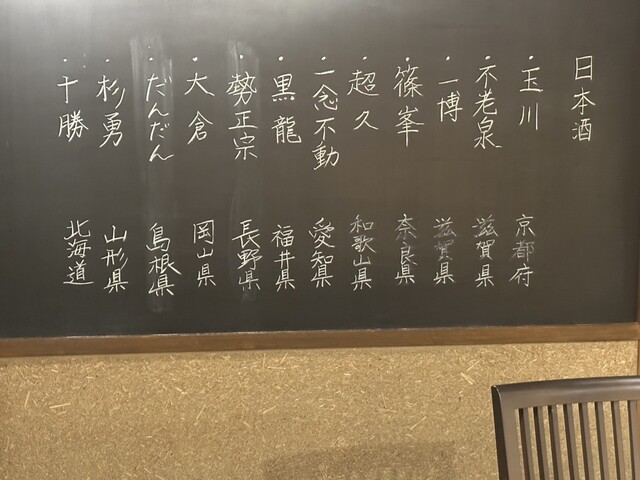 日本酒
・玉川 京都府
・不老泉 滋賀県
・一博 滋賀県
・篠峯 奈良県
・超久 和歌山県
・一念不動 愛知県
・黒龍 福井県
・勢正宗 長野県
・大倉 岡山県
・だんだん 島根県
・杉勇 山形県
・十勝 北海道